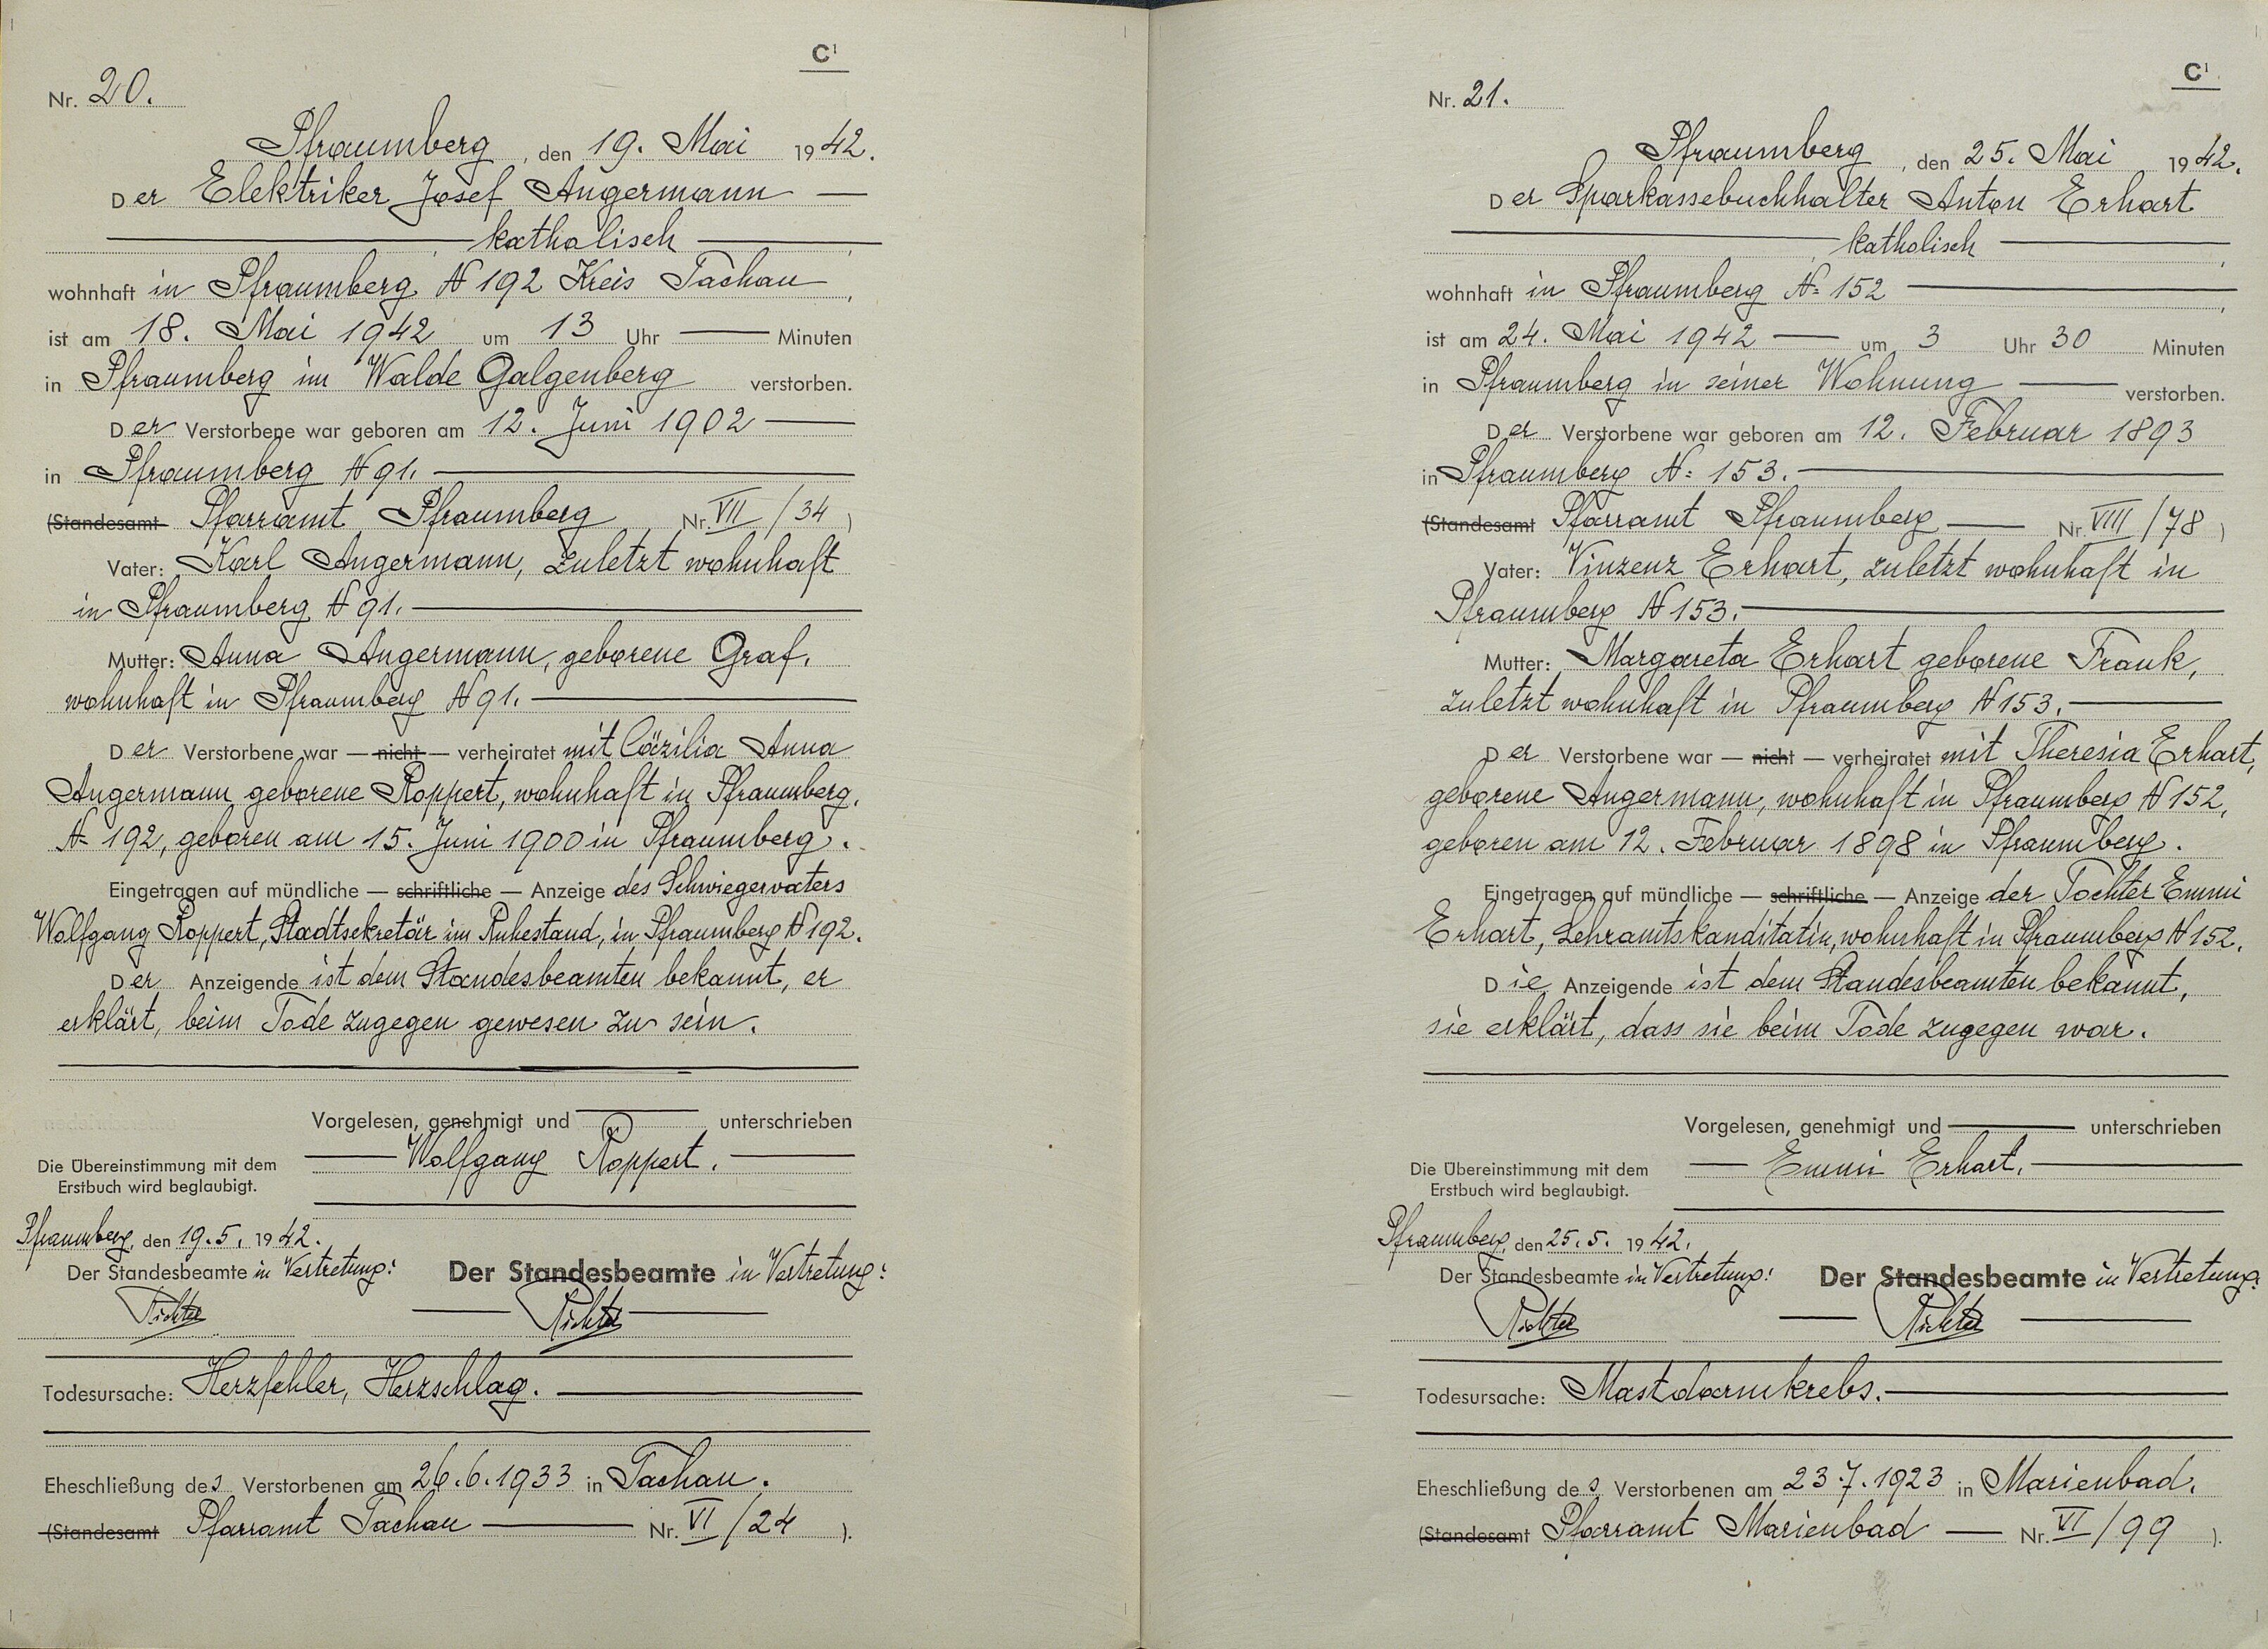 C¹
Nr. 20.
Pfraumberg, den 19. Mai 1942.
Der Elektriker Josef Angermann
katholisch
wohnhaft in Pfraumberg № 192 Kreis Tachau,
ist am 18. Mai 1942 um 13 Uhr — Minuten
in Pfraumberg im Walde Galgenberg verstorben.
Der Verstorbene war geboren am 12. Juni 1902
in Pfraumberg № 91.
(Standesamt Pfarramt Pfraumberg Nr. VII/34)
Vater: Karl Angermann, zuletzt wohnhaft
in Pfraumberg № 91.
Mutter: Anna Angermann, geborene Graf,
wohnhaft in Pfraumberg № 91.
Der Verstorbene war — nicht — verheiratet mit Cäzilia Anna
Angermann geborene Roppert, wohnhaft in Pfraumberg,
№ 192, geboren am 15. Juni 1900 in Pfraumberg.
Eingetragen auf mündliche — schriftliche — Anzeige des Schwiegervaters
Wolfgang Roppert, Stadtsekretär im Ruhestand, in Pfraumberg № 192.
Der Anzeigende ist dem Standesbeamten bekannt, er
erklärt, beim Tode zugegen gewesen zu sein.
Vorgelesen, genehmigt und — unterschrieben
Wolfgang Roppert.
Die Übereinstimmung mit dem
Erstbuch wird beglaubigt.
Pfraumberg, den 19.5. 1942.
Der Standesbeamte in Vertretung: Der Standesbeamte in Vertretung:
Richter Richter
Todesursache: Herzfehler, Herzschlag.
Eheschließung des Verstorbenen am 26.6.1933 in Tachau.
(Standesamt Pfarramt Tachau — Nr. VI/24).
C¹
Nr. 21.
Pfraumberg, den 25. Mai 1942.
Der Sparkassebuchhalter Anton Erhart
katholisch,
wohnhaft in Pfraumberg № 152,
ist am 24. Mai 1942 — um 3 Uhr 30 Minuten
in Pfraumberg in seiner Wohnung — verstorben.
Der Verstorbene war geboren am 12. Februar 1893
in Pfraumberg №: 153.
(Standesamt Pfarramt Pfraumberg — Nr. VIIII/78)
Vater: Vinzenz Erhart, zuletzt wohnhaft in
Pfraumberg № 153.
Mutter: Margareta Erhart geborene Frank,
zuletzt wohnhaft in Pfraumberg № 153.
Der Verstorbene war — nicht — verheiratet mit Theresia Erhart,
geborene Angermann, wohnhaft in Pfraumberg № 152,
geboren am 12. Februar 1898 in Pfraumberg.
Eingetragen auf mündliche — schriftliche — Anzeige der Tochter Emmi
Erhart, Lehramtskanditatin, wohnhaft in Pfraumberg № 152.
Die Anzeigende ist dem Standesbeamten bekannt,
sie erklärt, dass sie beim Tode zugegen war.
Vorgelesen, genehmigt und — unterschrieben
Emmi Erhart.
Die Übereinstimmung mit dem
Erstbuch wird beglaubigt.
Pfraumberg, den 25.5. 1942.
Der Standesbeamte in Vertretung: Der Standesbeamte in Vertretung:
Richter Richter
Todesursache: Mastdarmkrebs.
Eheschließung des Verstorbenen am 23.7.1923 in Marienbad.
(Standesamt Pfarramt Marienbad — Nr. VI/99).